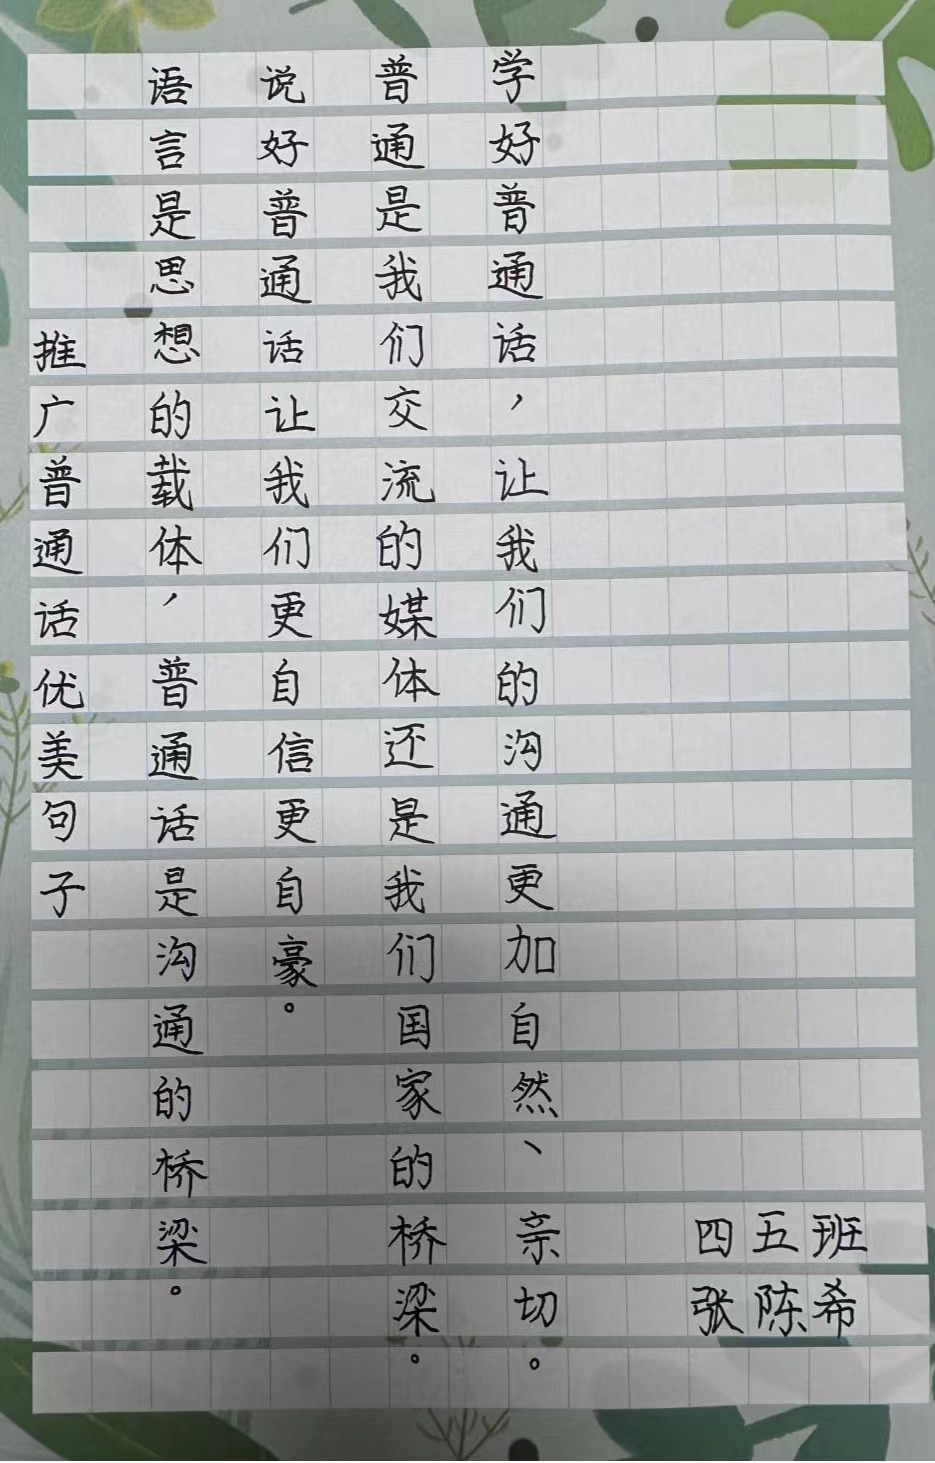 推广普通话优美句子
语言是思想的载体，普通话是沟通的桥梁。
说好普通话让我们更自信更自豪。
普通是我们交流的媒体还是我们国家的桥梁。
学好普通话，让我们的沟通更加自然、亲切。
四五班
张陈希